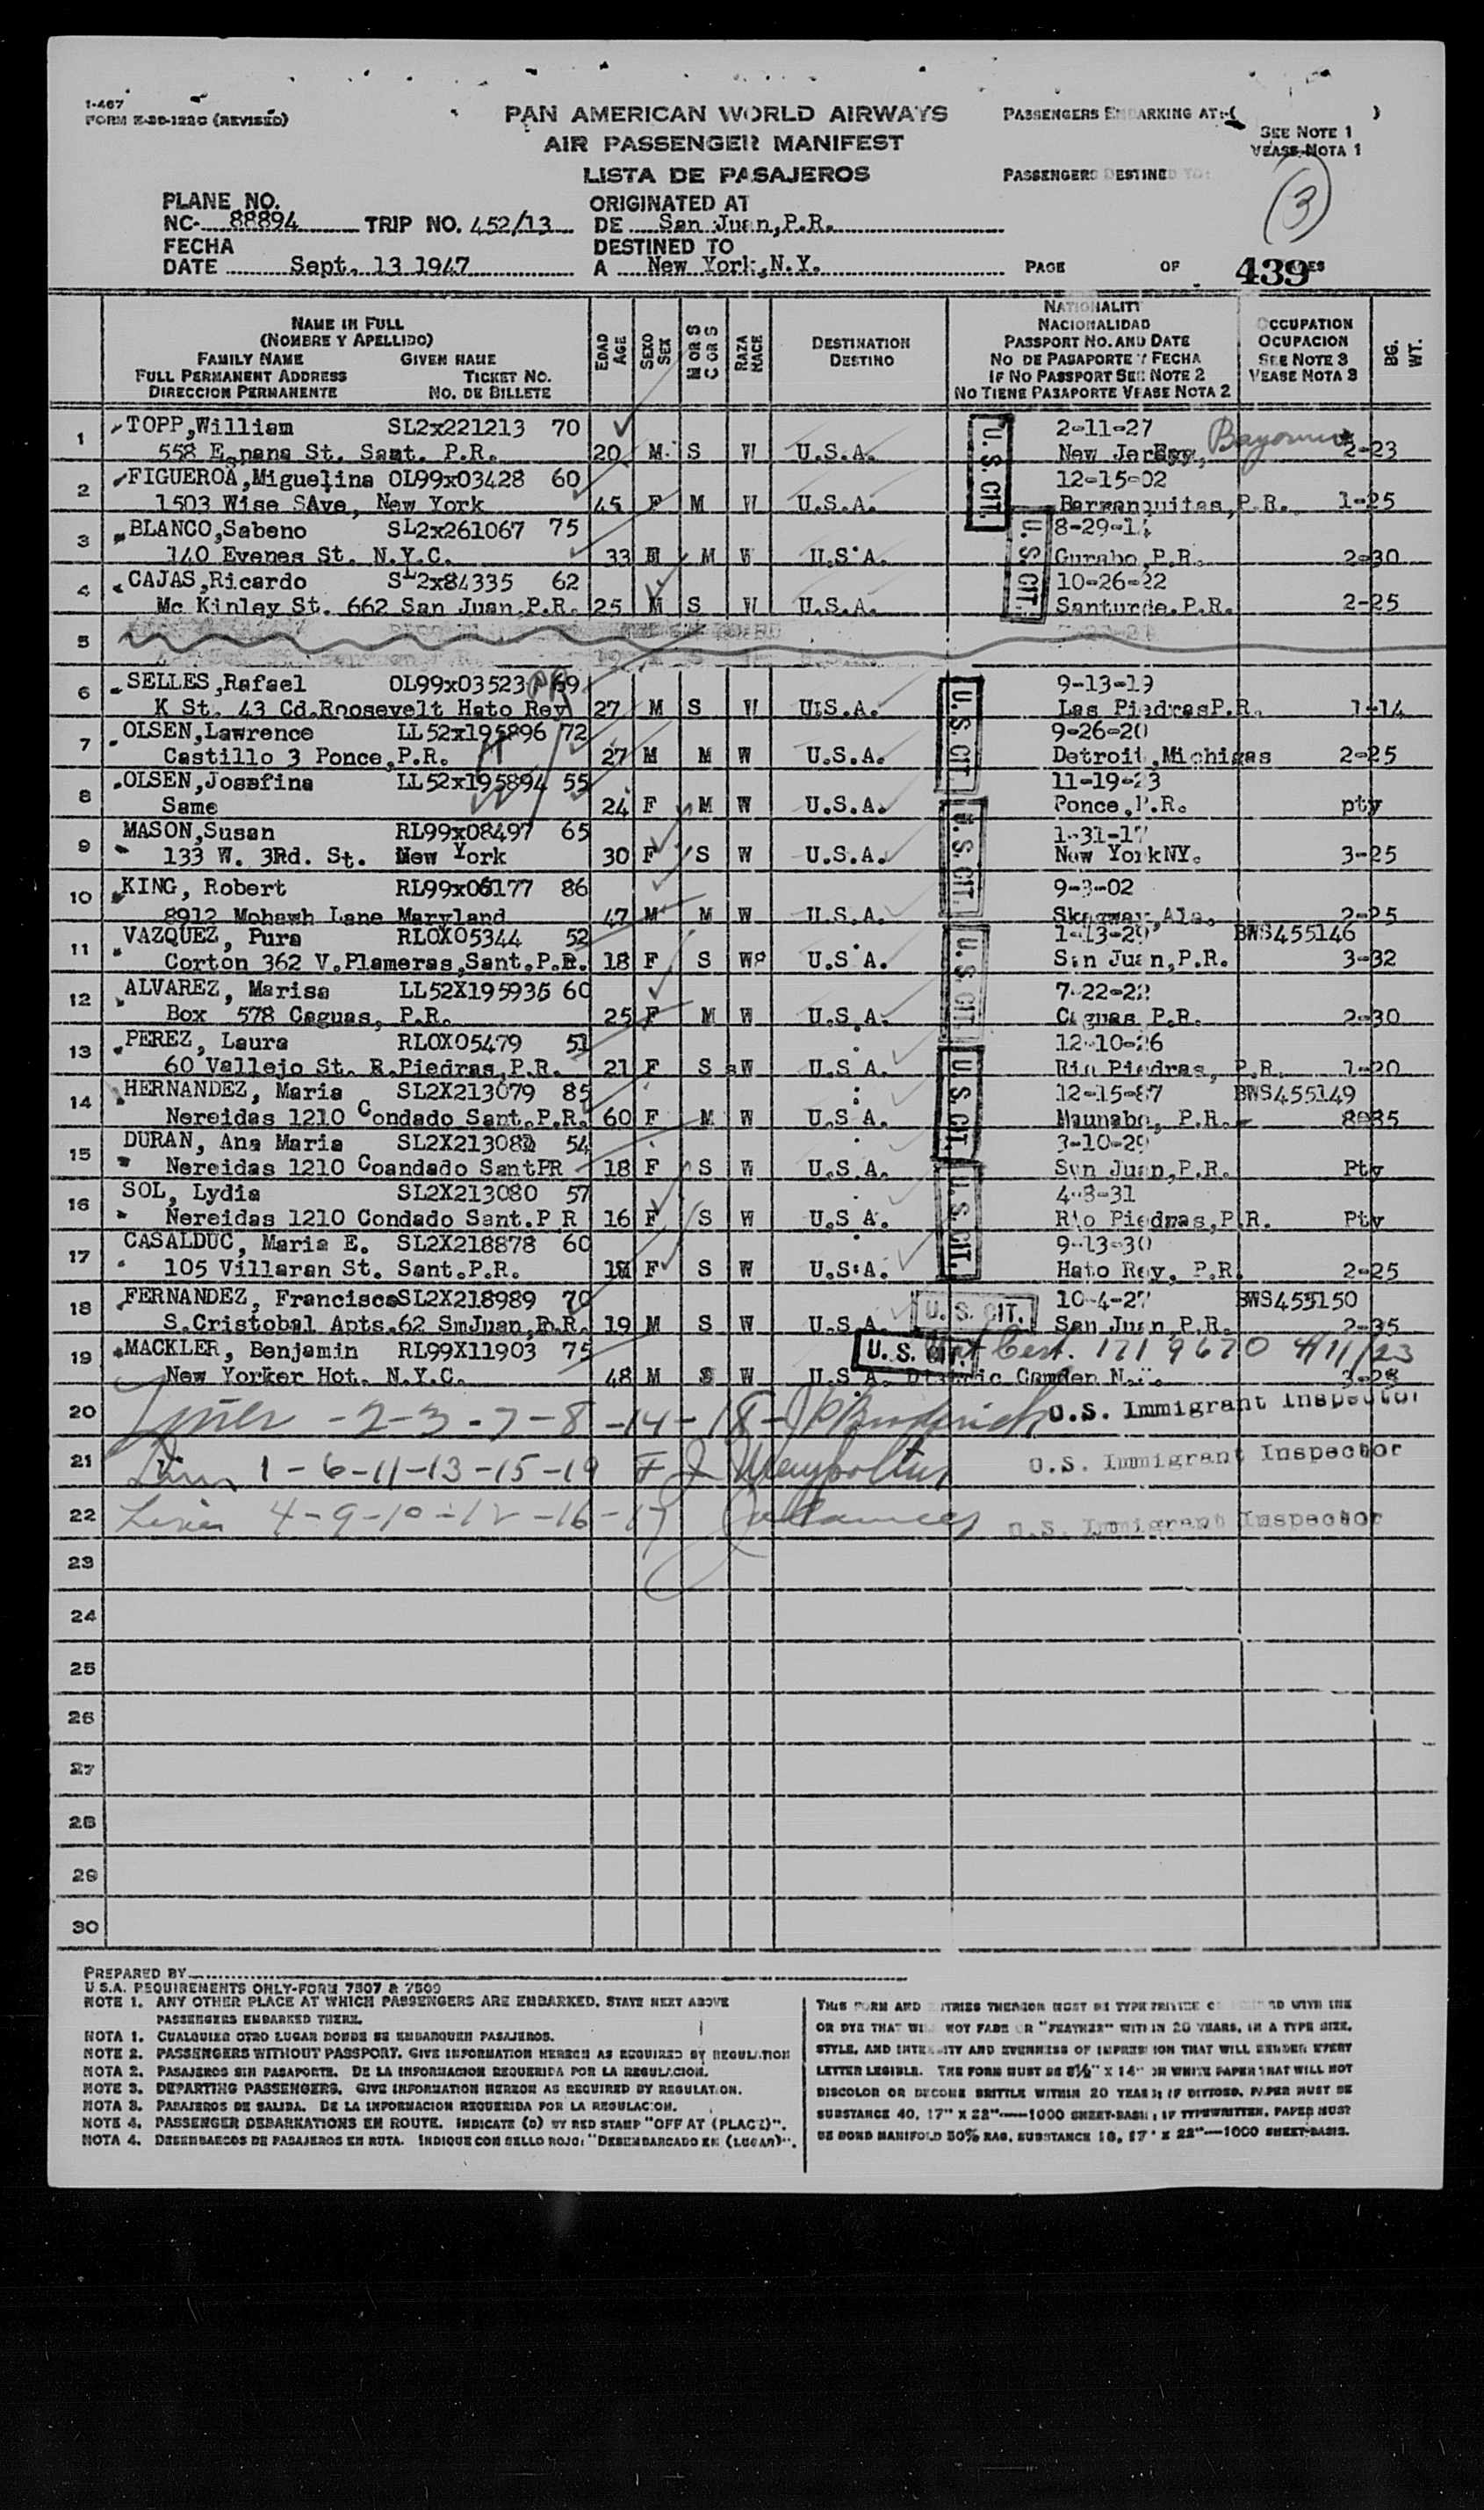 I-467
FORM E-30-122C (REVISED)
PAN AMERICAN WORLD AIRWAYS
AIR PASSENGER MANIFEST
LISTA DE PASAJEROS
PASSENGERS EMBARKING AT:-( )
SEE NOTE 1
VEASE NOTA 1
PASSENGERS DESTINED TO:
(3)
PLANE NO.
NC- 88894 TRIP NO. 452/13
ORIGINATED AT
DE San Juan, P.R.
FECHA
DATE Sept. 13 1947
DESTINED TO
A New York, N.Y.
PAGE OF 439
NAME IN FULL
(NOMBRE Y APELLIDO)
FAMILY NAME GIVEN NAME
FULL PERMANENT ADDRESS TICKET NO.
DIRECCION PERMANENTE NO. DE BILLETE
EDAD AGE
SEXO SEX
M OR S C OR S
RAZA RACE
DESTINATION DESTINO
NATIONALITY
NACIONALIDAD
PASSPORT NO. AND DATE
NO DE PASAPORTE Y FECHA
IF NO PASSPORT SEE NOTE 2
NO TIENE PASAPORTE VEASE NOTA 2
OCCUPATION
OCUPACION
SEE NOTE 3
VEASE NOTA 3
BG. WT.
1 TOPP,William SL2x221213 70 2-11-27
558 Espana St. Sant. P.R. 20 M S W U.S.A. New Jersey, Bayonne 2-23
2 FIGUEROA,Miguelina OL99x03428 60 12-15-02
1503 Wise SAve, New York 45 F M W U.S.A. Barranquitas,P.R. 1-25
3 BLANCO,Sabeno SL2x261067 75 8-29-14
140 Evenes St. N.Y.C. 33 M W U.S.A. Gurabo,P.R. 2-30
4 CAJAS,Ricardo SL2x84335 62 10-26-22
Mc Kinley St. 662 San Juan,P.R. 25 M S W U.S.A. Santurde.P.R. 2-25
5
6 SELLES,Rafael OL99x03523 69 9-13-19
K St. 43 Cd.Roosevelt Hato Rey 27 M S W U.S.A. Las PiedrasP.R. 1-14
7 OLSEN,Lawrence LL52x195896 72 9-26-20
Castillo 3 Ponce,P.R. 27 M M W U.S.A. Detroit,Michigas 2-25
8 OLSEN,Josefina LL52x195894 55 11-19-23
Same 24 F M W U.S.A. Ponce,P.R. pty
9 MASON,Susan RL99x08497 65 1-31-17
133 W. 3Rd. St. New York 30 F S W U.S.A. New YorkNY. 3-25
10 KING, Robert RL99x06177 86 9-3-02
8912 Mohawh Lane Maryland 47 M M W U.S.A. Skagway,Ala. 2-25
11 VAZQUEZ, Pura RLOX05344 52 1-13-29 BWS455146
Corton 362 V.Plameras,Sant.P.R. 18 F S W U.S.A. San Juan,P.R. 3-32
12 ALVAREZ, Marisa LL52X195935 60 7-22-22
Box 578 Caguas, P.R. 25 F M W U.S.A. Caguas P.R. 2-30
13 PEREZ, Laura RLOX05479 51 12-10-26
60 Vallejo St. R.Piedras,P.R. 21 F S W U.S.A. Rio Piedras, P.R. 1-20
14 HERNANDEZ, Maria SL2X213079 85 12-15-87 BWS455149
Nereidas 1210 Condado Sant.P.R. 60 F M W U.S.A. Maunabo, P.R. 8-85
15 DURAN, Ana Maria SL2X213081 54 3-10-29
Nereidas 1210 Coandado SantPR 18 F S W U.S.A. San Juan,P.R. Pty
16 SOL, Lydia SL2X213080 57 4-8-31
Nereidas 1210 Condado Sant.P R 16 F S W U.S A. Rio Piedras,P.R. Pty
17 CASALDUC, Maria E. SL2X218878 60 9-13-30
105 Villaran St. Sant.P.R. F S W U.S.A. Hato Rey, P.R. 2-25
18 FERNANDEZ, Francisco SL2X218989 70 10-4-27 BWS455150
S.Cristobal Apts.62 SmJuan,P.R. 19 M S W U.S.A. San Juan P.R. 2-35
19 MACKLER, Benjamin RL99X11903 75 Nat Cert. 1719670 4/11/23
New Yorker Hot. N.Y.C. 48 M S W U.S A. Camden N.J. 3-28
U.S. CIT.
U.S. CIT.
U.S. CIT.
U.S. CIT.
U.S. CIT.
U.S. CIT.
U.S. CIT.
U.S. CIT.
U.S. CIT.
20 Lines - 2-3-7-8-14-18- U.S. Immigrant Inspector
21 Lines 1-6-11-13-15-19 U.S. Immigrant Inspector
22 Lines 4-9-10-12-16-17 U.S. Immigrant Inspector
23
24
25
26
27
28
29
30
PREPARED BY
U.S.A. REQUIREMENTS ONLY-FORM 7507 & 7509
NOTE 1. ANY OTHER PLACE AT WHICH PASSENGERS ARE EMBARKED. STATE NEXT ABOVE
PASSENGERS EMBARKED THERE.
NOTA 1. CUALQUIER OTRO LUGAR DONDE SE EMBARQUEN PASAJEROS.
NOTE 2. PASSENGERS WITHOUT PASSPORT. GIVE INFORMATION HEREON AS REQUIRED BY REGULATION
NOTA 2. PASAJEROS SIN PASAPORTE. DE LA INFORMACION REQUERIDA POR LA REGULACION.
NOTE 3. DEPARTING PASSENGERS. GIVE INFORMATION HEREON AS REQUIRED BY REGULATION.
NOTA 3. PASAJEROS DE SALIDA. DE LA INFORMACION REQUERIDA POR LA REGULACION.
NOTE 4. PASSENGER DEBARKATIONS EN ROUTE. INDICATE (D) BY RED STAMP "OFF AT (PLACE)".
NOTA 4. DESEMBARCOS DE PASAJEROS EN RUTA. INDIQUE CON SELLO ROJO: "DESEMBARCADO EN (LUGAR)".
THIS FORM AND ENTRIES THEREON MUST BE TYPE WRITTEN OR PRINTED WITH INK
OR DYE THAT WILL NOT FADE OR "FEATHER" WITHIN 20 YEARS, IN A TYPE SIZE,
STYLE, AND INTENSITY AND EVENNESS OF IMPRESSION THAT WILL RENDER EVERY
LETTER LEGIBLE. THE FORM MUST BE 8½" X 14" ON WHITE PAPER THAT WILL NOT
DISCOLOR OR BECOME BRITTLE WITHIN 20 YEARS; IF DITTOED, PAPER MUST BE
SUBSTANCE 40, 17" X 22"—1000 SHEET-BASIS; IF TYPEWRITTEN, PAPER MUST
BE BOND MANIFOLD 50% RAG, SUBSTANCE 18, 17" X 22"—1000 SHEET-BASIS.